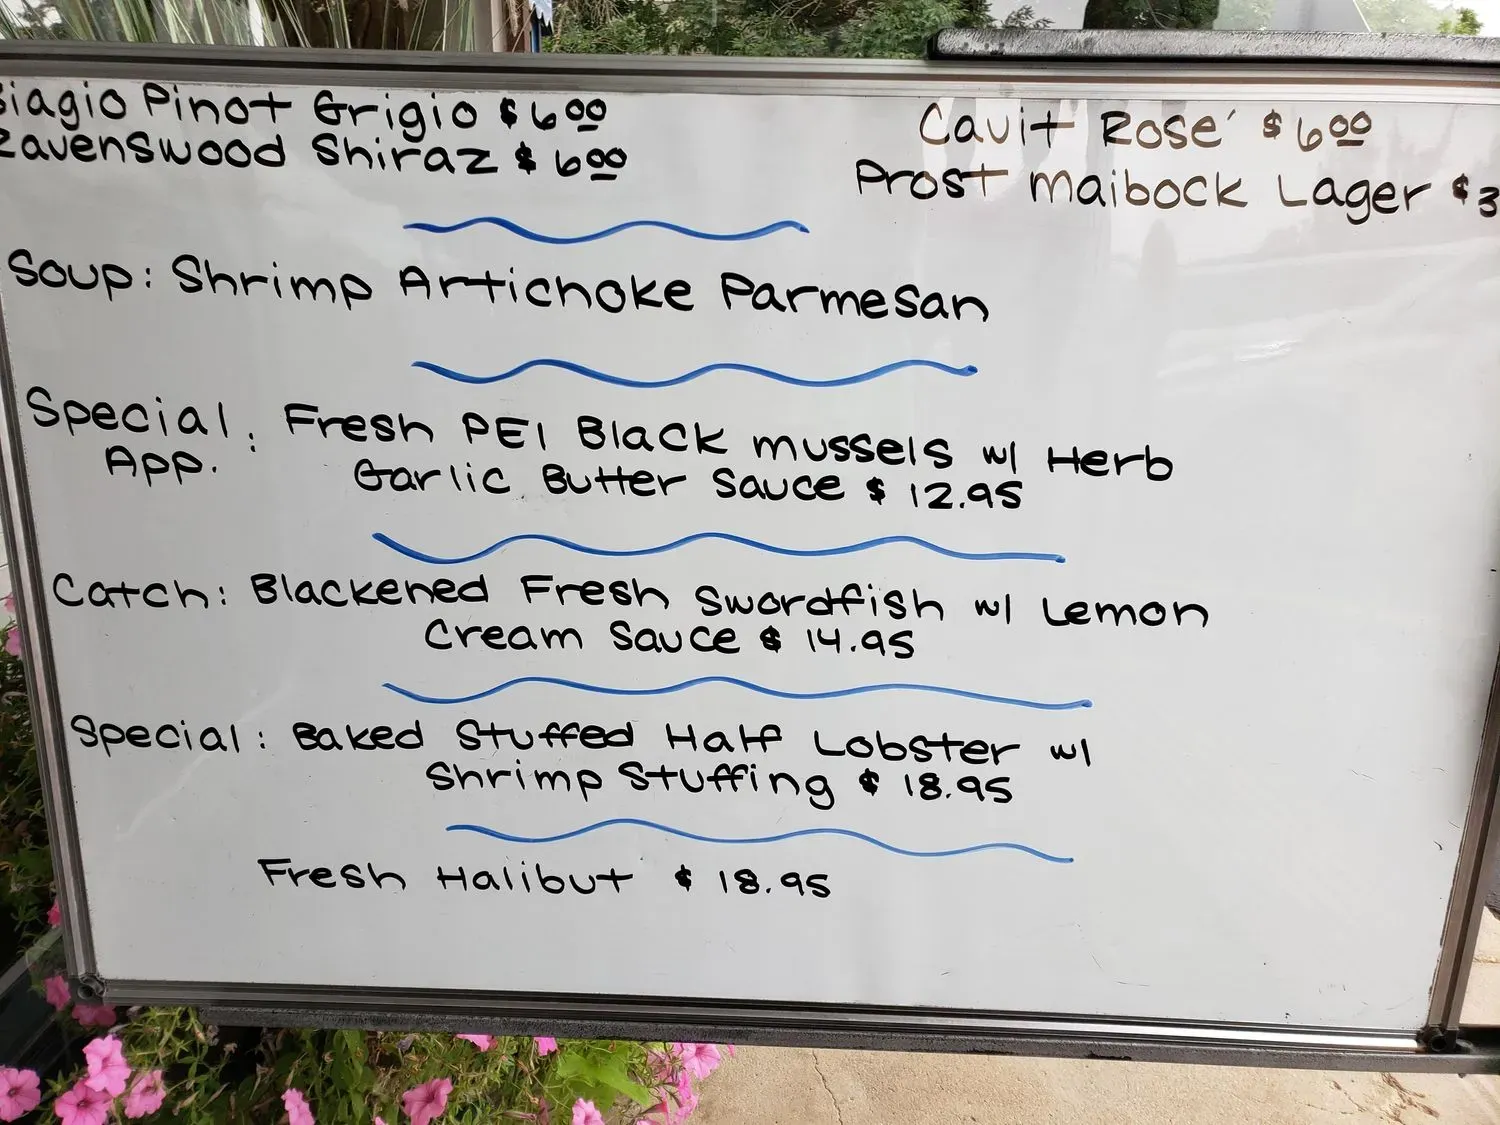 Biagio Pinot Grigio $6.00
Ravenswood Shiraz $6.00
Cavit Rosé $6.00
Prost Maibock Lager $3
Soup: Shrimp Artichoke Parmesan
Special App. : Fresh PEI Black Mussels w/ Herb
Garlic Butter Sauce $12.95
Catch: Blackened Fresh Swordfish w/ Lemon
Cream Sauce $14.95
Special: Baked Stuffed Half Lobster w/
Shrimp Stuffing $18.95
Fresh Halibut $18.95